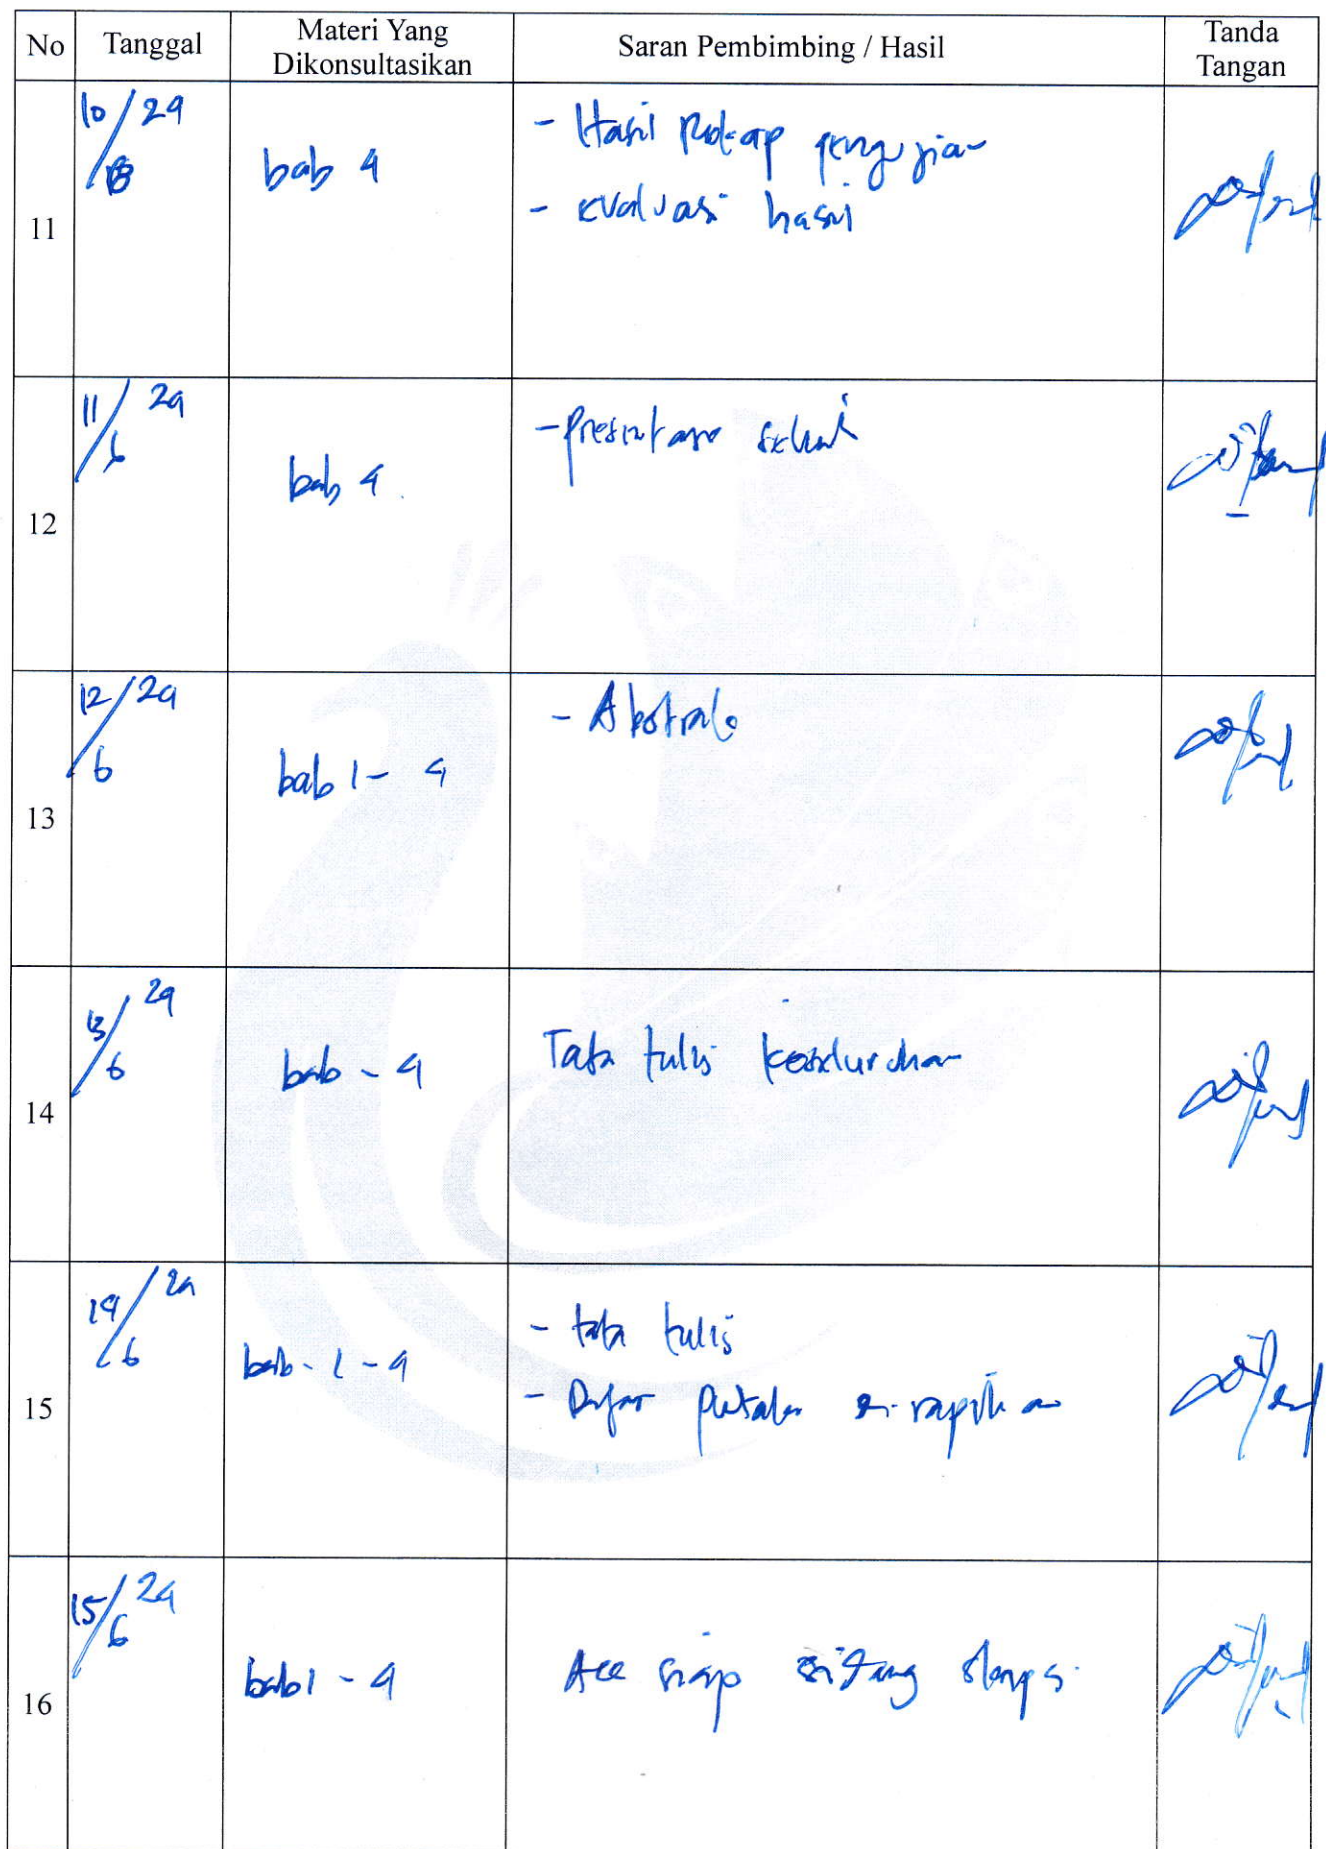 No Tanggal Materi Yang Dikonsultasikan Saran Pembimbing / Hasil Tanda Tangan
11 10/6 24 bab 4
- Hasil Rekap pengujian
- evaluasi hasil
12 11/6 24 bab 4
- presentase
13 12/6 24 bab 1 - 4
- Abstrak
14 13/6 24 bab - 4
Tata tulis keseluruhan
15 14/6 24 bab - 1 - 4
- tata tulis
- Daftar Pustaka di rapikan
16 15/6 24 bab 1 - 4
Acc siap sidang skripsi